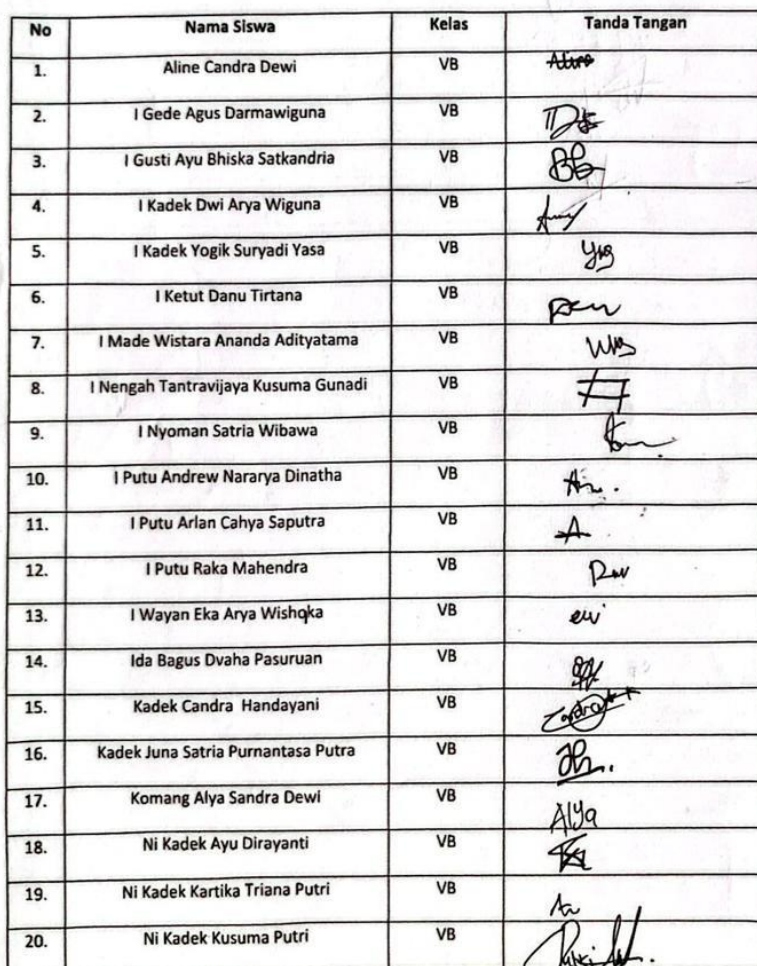 No Nama Siswa Kelas Tanda Tangan
1. Aline Candra Dewi VB Aline
2. I Gede Agus Darmawiguna VB
3. I Gusti Ayu Bhiska Satkandria VB
4. I Kadek Dwi Arya Wiguna VB
5. I Kadek Yogik Suryadi Yasa VB
6. I Ketut Danu Tirtana VB
7. I Made Wistara Ananda Adityatama VB
8. I Nengah Tantravijaya Kusuma Gunadi VB
9. I Nyoman Satria Wibawa VB
10. I Putu Andrew Nararya Dinatha VB
11. I Putu Arlan Cahya Saputra VB A
12. I Putu Raka Mahendra VB
13. I Wayan Eka Arya Wishoka VB
14. Ida Bagus Dvaha Pasuruan VB
15. Kadek Candra Handayani VB Candra
16. Kadek Juna Satria Purnantasa Putra VB
17. Komang Alya Sandra Dewi VB Alya
18. Ni Kadek Ayu Dirayanti VB
19. Ni Kadek Kartika Triana Putri VB
20. Ni Kadek Kusuma Putri VB